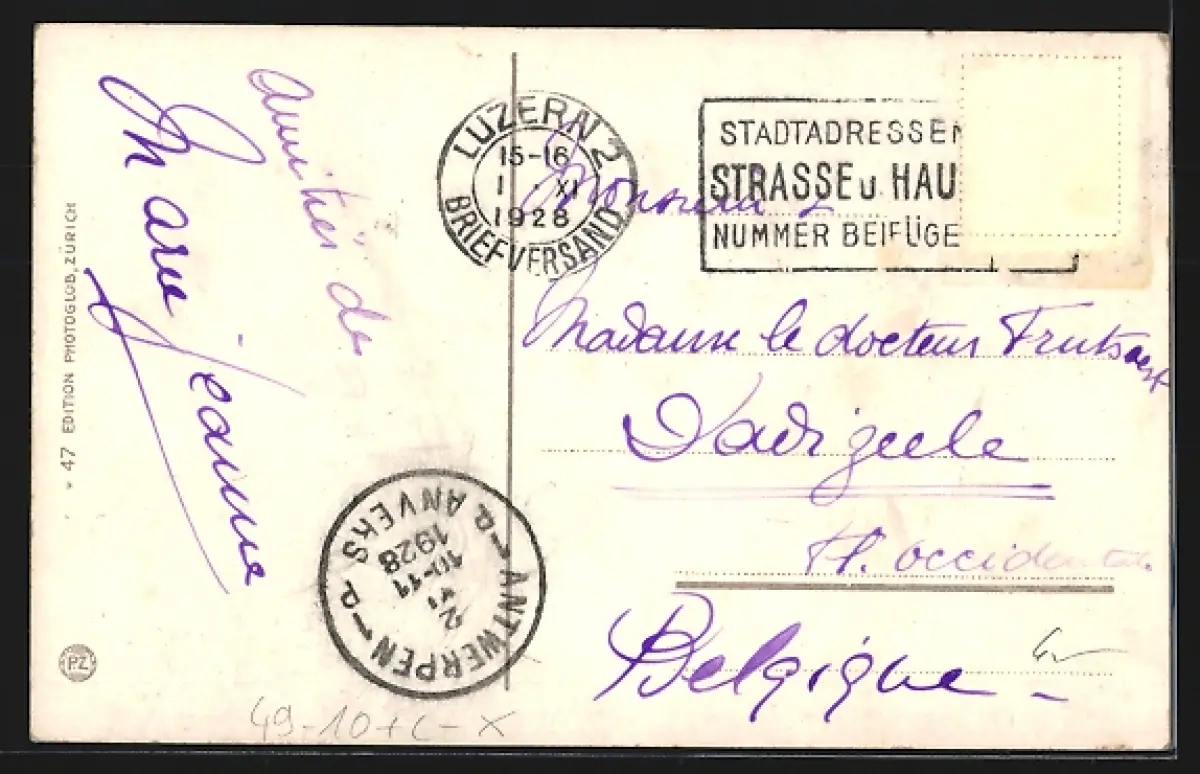 amitiés de
Marie Jeanne
* 47 EDITION PHOTOGLOB, ZÜRICH
PZ
LUZERN 2
15-16
1 XI
1928
BRIEFVERSAND
STADTADRESSEN
STRASSE u HAU
NUMMER BEIFÜGE
Monsieur &
Madame le docteur
Dadizeele
Fl. occidentale
Belgique
ANTWERPEN
ANVERS
2 XI
10-11
1928
49-10+L-X